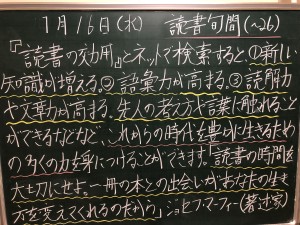 1月16日(水) 読書旬間(~26)
『読書の効用』とネットで検索すると、①新しい
知識が増える。②語彙力が高まる。③読解力
や文章力が高まる。先人の考え方や言葉に触れること
ができるなどなど、これからの時代を豊かに生きるため
の多くの力を身につけることができます。「読書の時間を
大切にせよ。一冊の本との出会いがあなたの生き
方を変えてくれるのだから」ジョセフ・マーフィー(著述家)